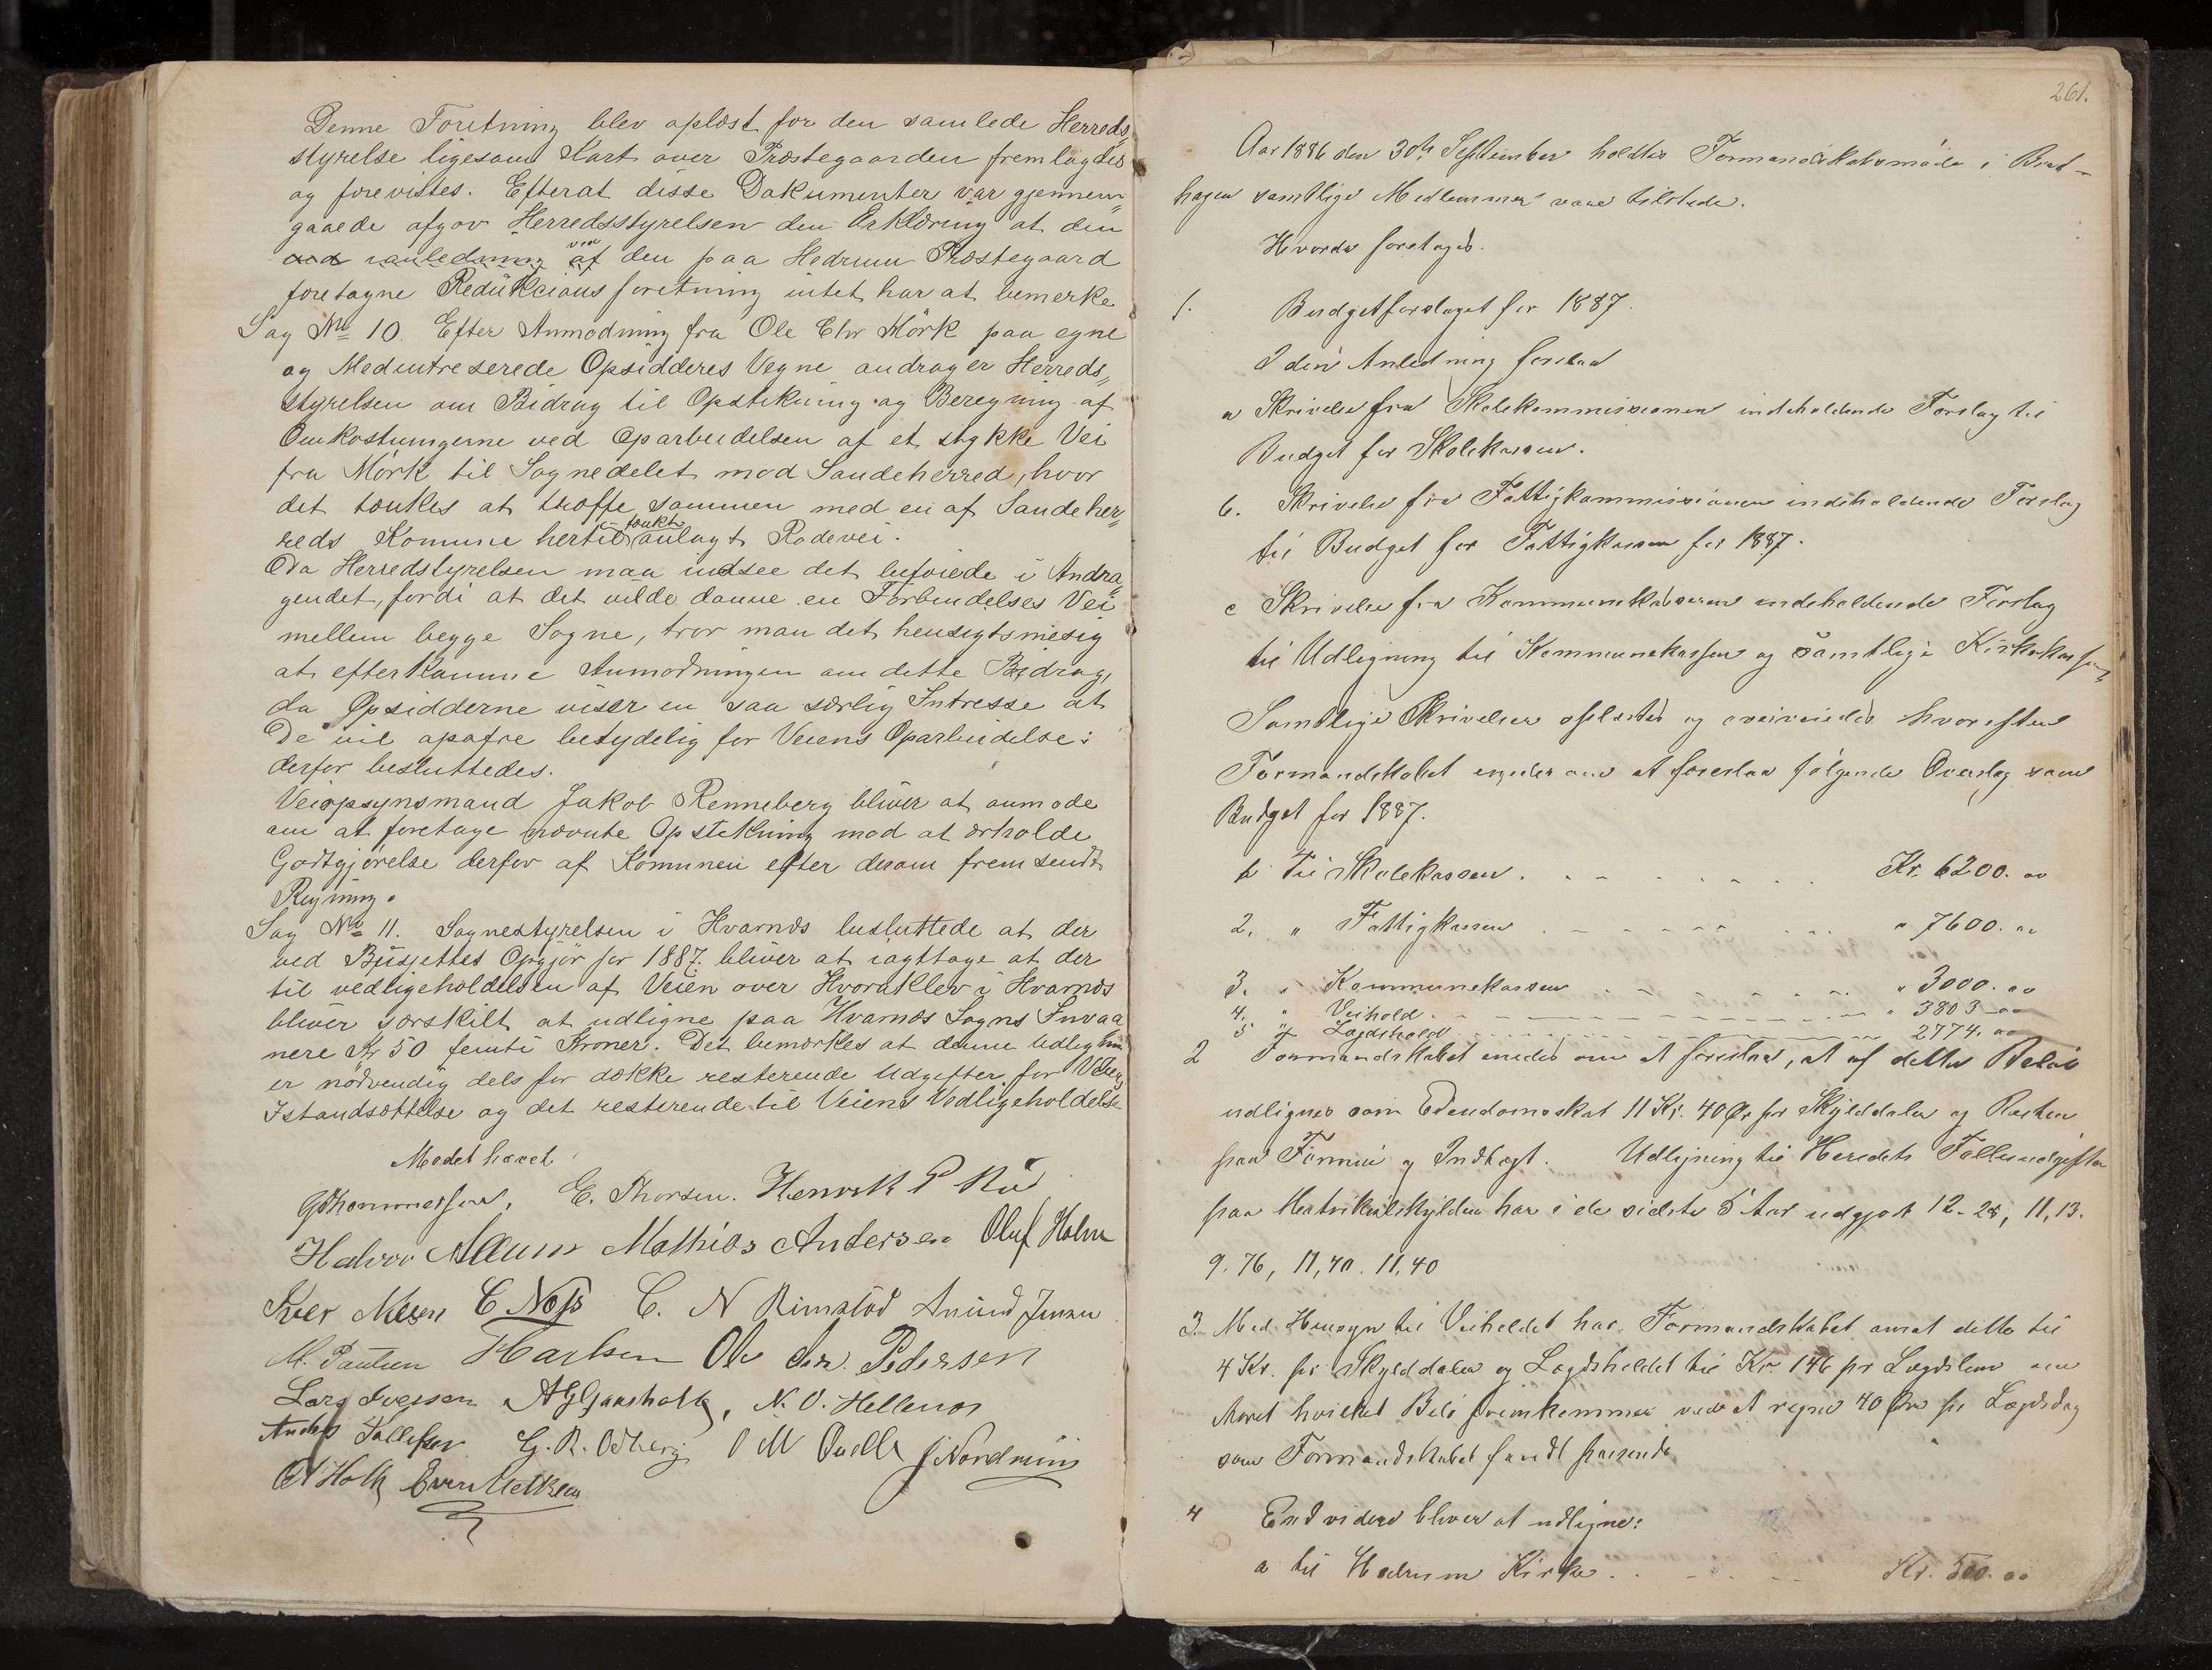 Denne Foretning blev oplæst for den samlede Herreds„
styrelse ligesom Kart over Præstegaarden fremlagdes
og forevistes. Efterat disse Dokumenter var gjennem„
gaaede afgav Herredsstyrelsen den Erklæring at den
ved
ved anledning af den paa Hedrum Præstegaard
foretagne Redükcions foretning intet har at bemerke
Sag No 10. Efter Anmodning fra Ole Chr Mörk paa egne
og Medintreserede Opsidderes Vegne andrager Herreds„
styrelsen om Bidrag til Opstikning og Beregning af
Omkostningerne ved Oparbeidelsen af et stykke Vei
fra Mörk til Sognedelet mod Sandeherred, hvor
det tænkes at træffe sammen med en af Sandeher„
tænkt
reds Komune hertil anlagt Rodevei.
Da Herredstyrelsen maa indsee det beføiede i Andra„
gendet, fordi at det vilde danne en Forbindelses Vei
mellem begge Sogne, tror man det hensigtsmesig
at efterkomme Anmodningen om dette Bidrag,
da Opsidderne viser en saa særlig Intresse at
De vil opofre betydelig for Veiens Oparbeidelse:
derfor besluttedes.
Veiopsynsmand Jakob Renneberg bliver at anmode
om at foretage nævnte Opstikning mod at erholde
Godtgjørelse derfor af Komunen efter derom fremsendt
Regning.
Sag No 11. Sognestyrelsen i Hvarnes besluttede at der
ved Büsjettes Opgjør for 1887 bliver at iagttage at der
til vedligeholdelsen af Veien over Hvoraklev i Hvarnes
bliver særskilt at udligne paa Hvarnes Sogns Invaa
nere Kr 50 femti Kroner. Det bemærkes at denne Udligning
er nödvendig dels for dække resterende Udgifter for Veiens
Istandsættelse og det resterende til Veiens Vedligeholdelse
Mødet hævet
E. Thorsen. Henrik P
Halvor Allum Mathias Andersen Oluf Holm
C Noss C. N Rimstöd Anund Jensen
M. Paulsen Ole Chr. Pedersen
Lars Iversen N. O. Hellenes
Anders G. R. Odberg O M
Holt
261.
Aar 1886 den 30th September holdtes Formandskabsmøde i Brat-
hagen samtlige Medlemmer vare tilstede.
Hvorda foretoges.
1. Budgetforslaget for 1887.
I den Anledning forelaa
a Skrivelse fra Skolekommissionen indeholdende Forslag til
Budget for Skolekassen.
b. Skrivelse fra Fattigkommissionen indeholdende Forslag
til Budget for Fattigkassen for 1887.
c Skrivelse fra Kommunekasseren indeholdende Forslag
til Udligning til Kommunekassen og samtlige Kirkekasser
Samtlige Skrivelser oplæstes og overveiedes hvorefter
Formandskabet enedes om at foreslaa følgende Overslag som
Budget for 1887.
1. Til Skolekassen . . . . . . Kr. 6200. oo
2. „ Fattigkassen . . . . . . „ 7600. oo
3. „ Kommunekassen . . . . . . „ 3000. oo
4. „ Veihold . . . . . . „ 3803 oo
5 „ Lægdshold . . . . . . 2774. oo
2 Formandskabet enedes om at foreslaa, at af dette Beløb
udlignes som Eiendomsskat 11 Kr. 40 Øre pr Skylddaler og Resten
paa Formue og Indtægt. Udligning til Heredets Fællesudgifter
paa Matrikulskylden har i de sidste 5 Aar udgjort 12-28, 11,13.
9.76, 11,40. 11,40
3. Med Hensyn til Veiholdet har Formandskabet ansat dette til
4 Kr. pr Skylddaler og Lægdsholdet til Kr. 146 pr Lægdslem om
Aaret hvilket Beløb fremkommer ved at regne 40 Øre pr Lægdsdag
som Formandskabet fandt passende
4 Endvidere bliver at udligne:
a til Hedrum Kirke . . . . Kr. 500. oo